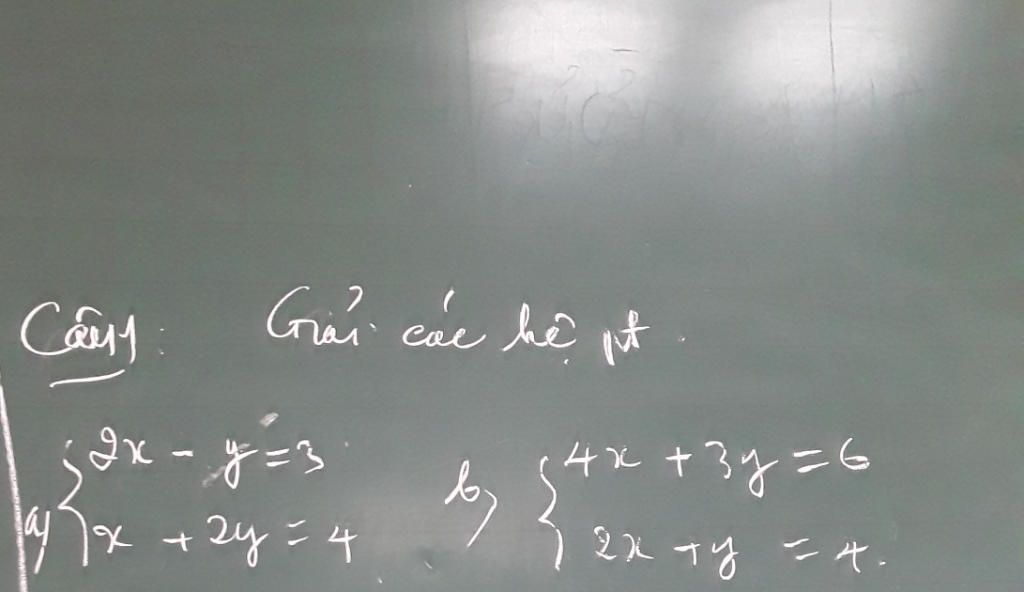 Câu 1: Giải các hệ pt.
a) { 2x - y = 3
x + 2y = 4
b) { 4x + 3y = 6
2x + y = 4.